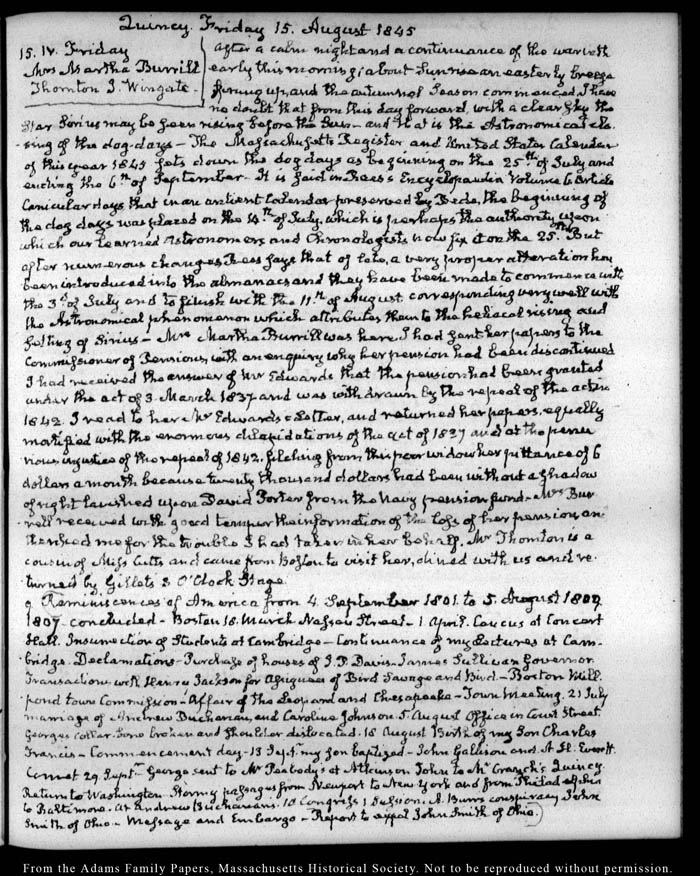 Quincy. Friday 15. August 1845
15. IV. Friday
Mrs Martha Burrill
Thornton J. Wingate.
After a calm night and a continuance of the warmth
early this morning, about Sunrise an easterly breeze
sprung up and the autumnal Season commenced. I have
no doubt that from this day forward, with a clear sky the
Star Sirius may be seen rising before the Sun - and that is the Astronomical clo-
sing of the dog-days - The Massachusetts Register and United States Calendar
of this year 1845 sets down the dog days as beginning on the 25th of July and
ending the 6th of September - It is said in Rees's Encyclopaedia Volume 6 Article
Canicular days that in an antient Calendar preserved by Bede, the beginning of
the dog days was placed on the 14th of July which is perhaps the authority upon
which our learned Astronomers and Chronologists now fix it on the 25th. But
after numerous changes Rees says that of late, a very proper alteration has
been introduced into the almanacs and they have been made to commence with
the 3d of July and to finish with the 11th of August corresponding very well with
the Astronomical phenomenon which attributes them to the heliacal rising and
setting of Sirius - Mrs Martha Burrill was here. I had sent her papers to the
Commissioner of Pensions with an enquiry why her pension had been discontinued
I had received the answer of Mr Edwards that the pension had been granted
under the act of 3. March 1837 and was withdrawn by the repeal of the act in
1842. I read to her Mr Edwards's Letter, and returned her papers, equally
mortified with the enormous dilapidations of the act of 1837 and at the penu-
rious injustice of the repeal of 1842. filching from this poor widow her pittance of 6
dollars a month because twenty thousand dollars had been without a shadow
of right lavished upon David Porter from the Navy pension fund - Mrs Bur-
rell received with good temper the information of the loss of her pension, and
thanked me for the trouble I had taken in her behalf. Mr Thornton is a
cousin of Miss Cutts and came from Boston to visit her, dined with us and re-
turned by Gillets 5 O'Clock Stage
9 Reminiscences of America from 4. September 1801. to 5. August 1809
1807. concluded - Boston 18. March Nassau Street - 1 April. Caucus at Concert
Hall. Insurrection of Students at Cambridge - Continuance of my Lectures at Cam-
bridge. Declamations - Purchase of houses of J. P. Davis. James Sullivan Governor
Transactions with Henry Jackson for Assignees of Bird Savage and Bird. - Boston Mill
pond town Commission - Affair of the Leopard and Chesapeake - Town Meeting. 21 July
marriage of Andrew Buchanan, and Caroline Johnson. 5. August Office in Court Street.
Georges collar bone broken and shoulder dislocated. 18 August Birth of my Son Charles
Francis - Commencement day - 13 Septr my son baptized - John Gallison and A. H. Everett.
Comet 29. Septr George sent to Mr Peabody's at Atkinson John to Mr Cranch's Quincy.
Return to Washington. Stormy passages from Newport to New York and from Philadelphia
to Baltimore. At Andrew Buchanans. 10 Congress 1 Session. A. Burrs conspiracy John
Smith of Ohio - Message and Embargo - Report to expel John Smith of Ohio.
From the Adams Family Papers, Massachusetts Historical Society. Not to be reproduced without permission.